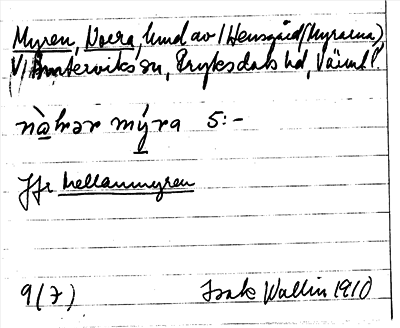 Myren, Norra, hmd av /Hensgård (Myrarna)
V/Ämterviks sn, Fryksdals hd, Värml.
nàhrər mýra 5:-
Jfr Mellanmyren
9(7) Isak Wallin 1910